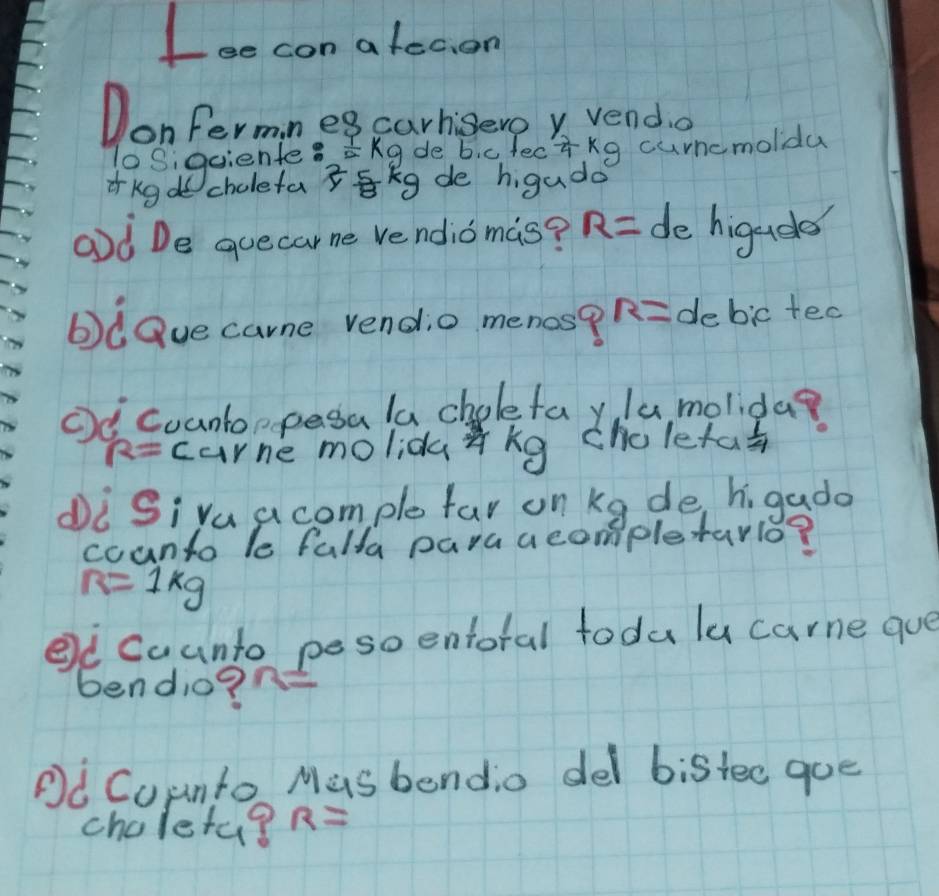 Lee con atecion
Don Fermin es carnisero y vendio
lo Siguiente: Kg de bictec Kg carne molida
Kg de choleta y 5/8 kg de higado
a) ¿De que carne vendió más? R= de higado
b) ¿Que carne vendio menos? R= de bic tec
c) ¿Cuanto pesa la choleta y la molida?
R= carne molida kg choleta
d) ¿Si va a completar un kg de higado
cuanto le falta para acompletarlo?
R= 1kg
e) ¿Cuanto peso entotal toda la carne que
bendio? R=
¿Cuanto Mas bendio del bistec que
choleta? R=